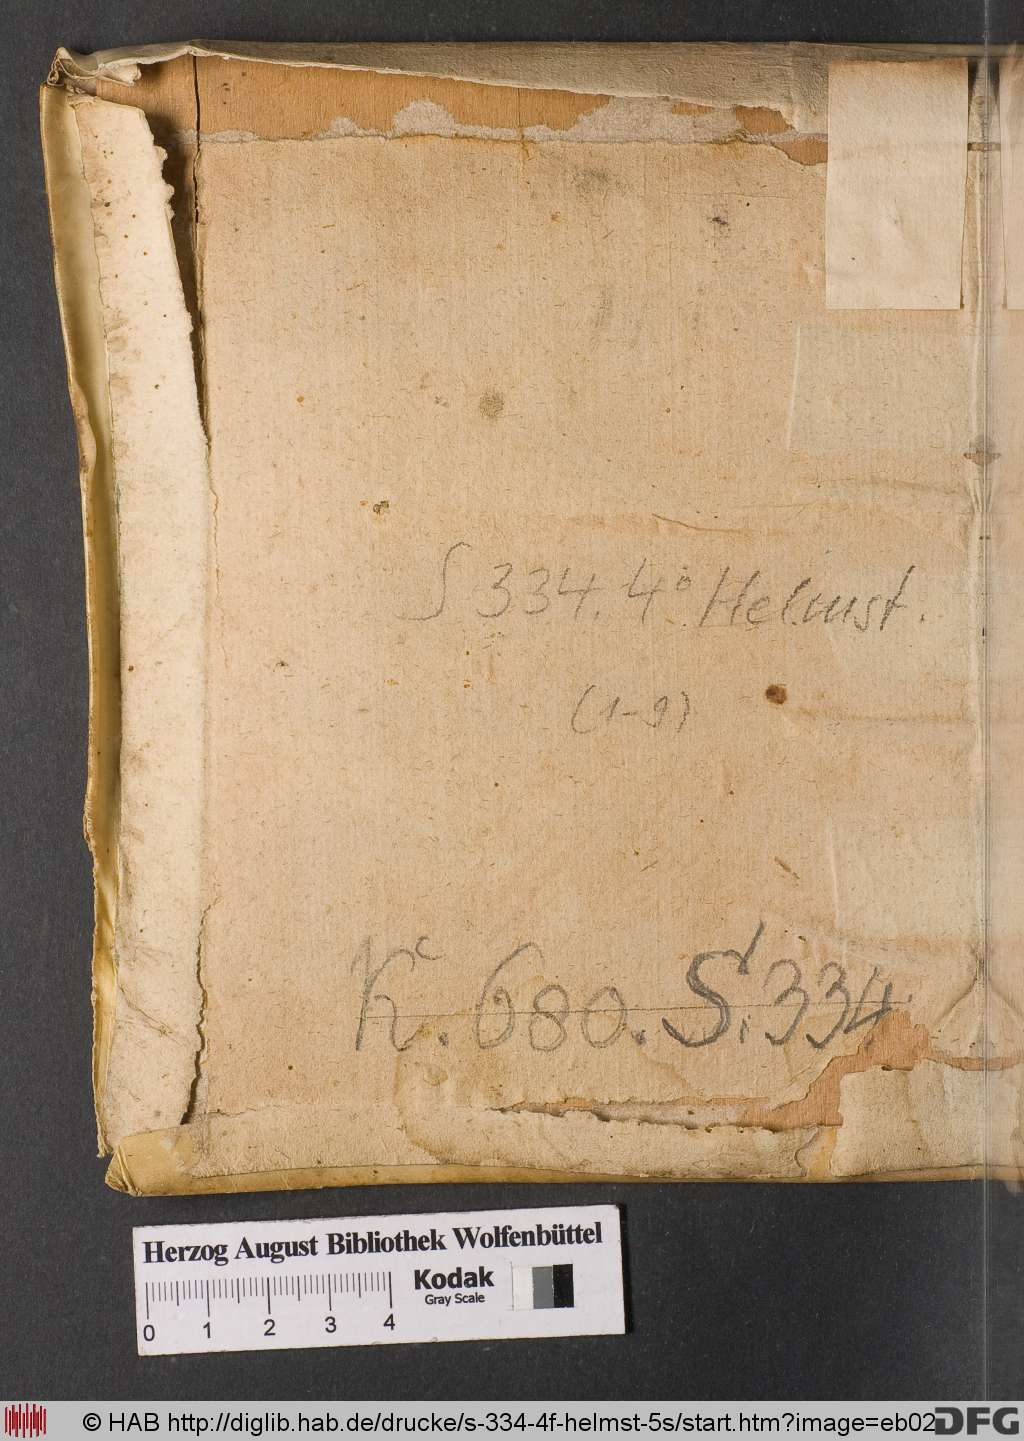 S 334. 4° Helmst.
(1-9)
K. 680. S. 334
Herzog August Bibliothek Wolfenbüttel
Kodak
Gray Scale
0 1 2 3 4
© HAB http://diglib.hab.de/drucke/s-334-4f-helmst-5s/start.htm?image=eb02
DFG